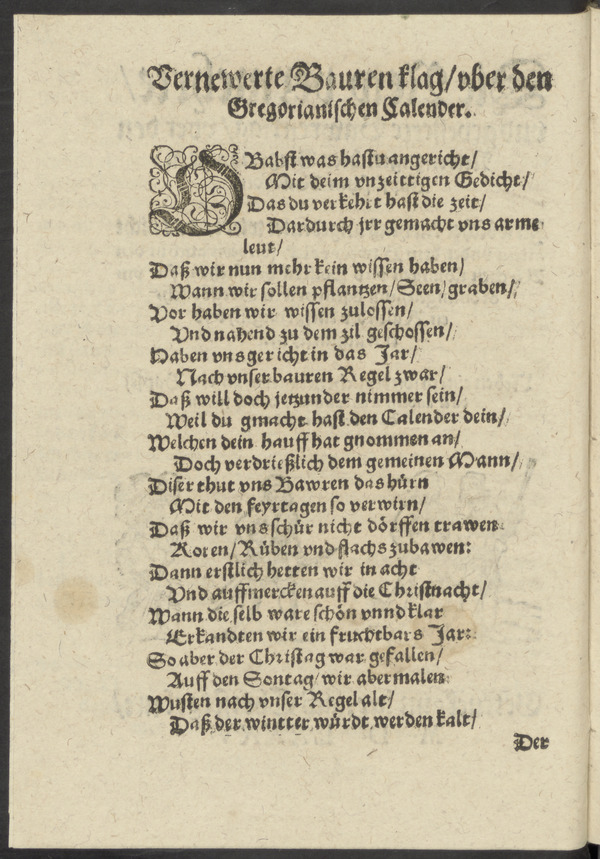 Vernewerte Bauren klag/vber den
Gregorianischen Calender.
O Babst was hastu angericht/
Mit deim vnzeittigen Gedicht/
Das du verkehrt hast die zeit/
Dardurch jrr gemacht vns arme
leut/
Daß wir nun mehr kein wissen haben/
Wann wir sollen pflantzen/Seen/graben/
Vor haben wir wissen zulossen/
Vnd nahend zu dem zil geschossen/
Haben vns gericht in das Jar/
Nach vnser bauren Regel zwar/
Daß will doch jetzunder nimmer sein/
Weil du gmacht hast den Calender dein/
Welchen dein hauff hat gnommen an/
Doch verdrießlich dem gemeinen Mann/
Diser thut vns Bawren das hürn
Mit den feyrtagen so verwirn/
Daß wir vns schür nicht dörffen trawen
Koren/Rüben vnd flachs zubawen:
Dann erstlich hetten wir in acht
Vnd auffmercken auff die Christnacht/
Wann die selb ware schön vnnd klar
Erkandten wir ein fruchtbars Jar:
So aber der Christag war gefallen/
Auff den Sontag/wir abermalen
Wusten nach vnser Regel alt/
Daß der wintter würdt werden kalt/
Der